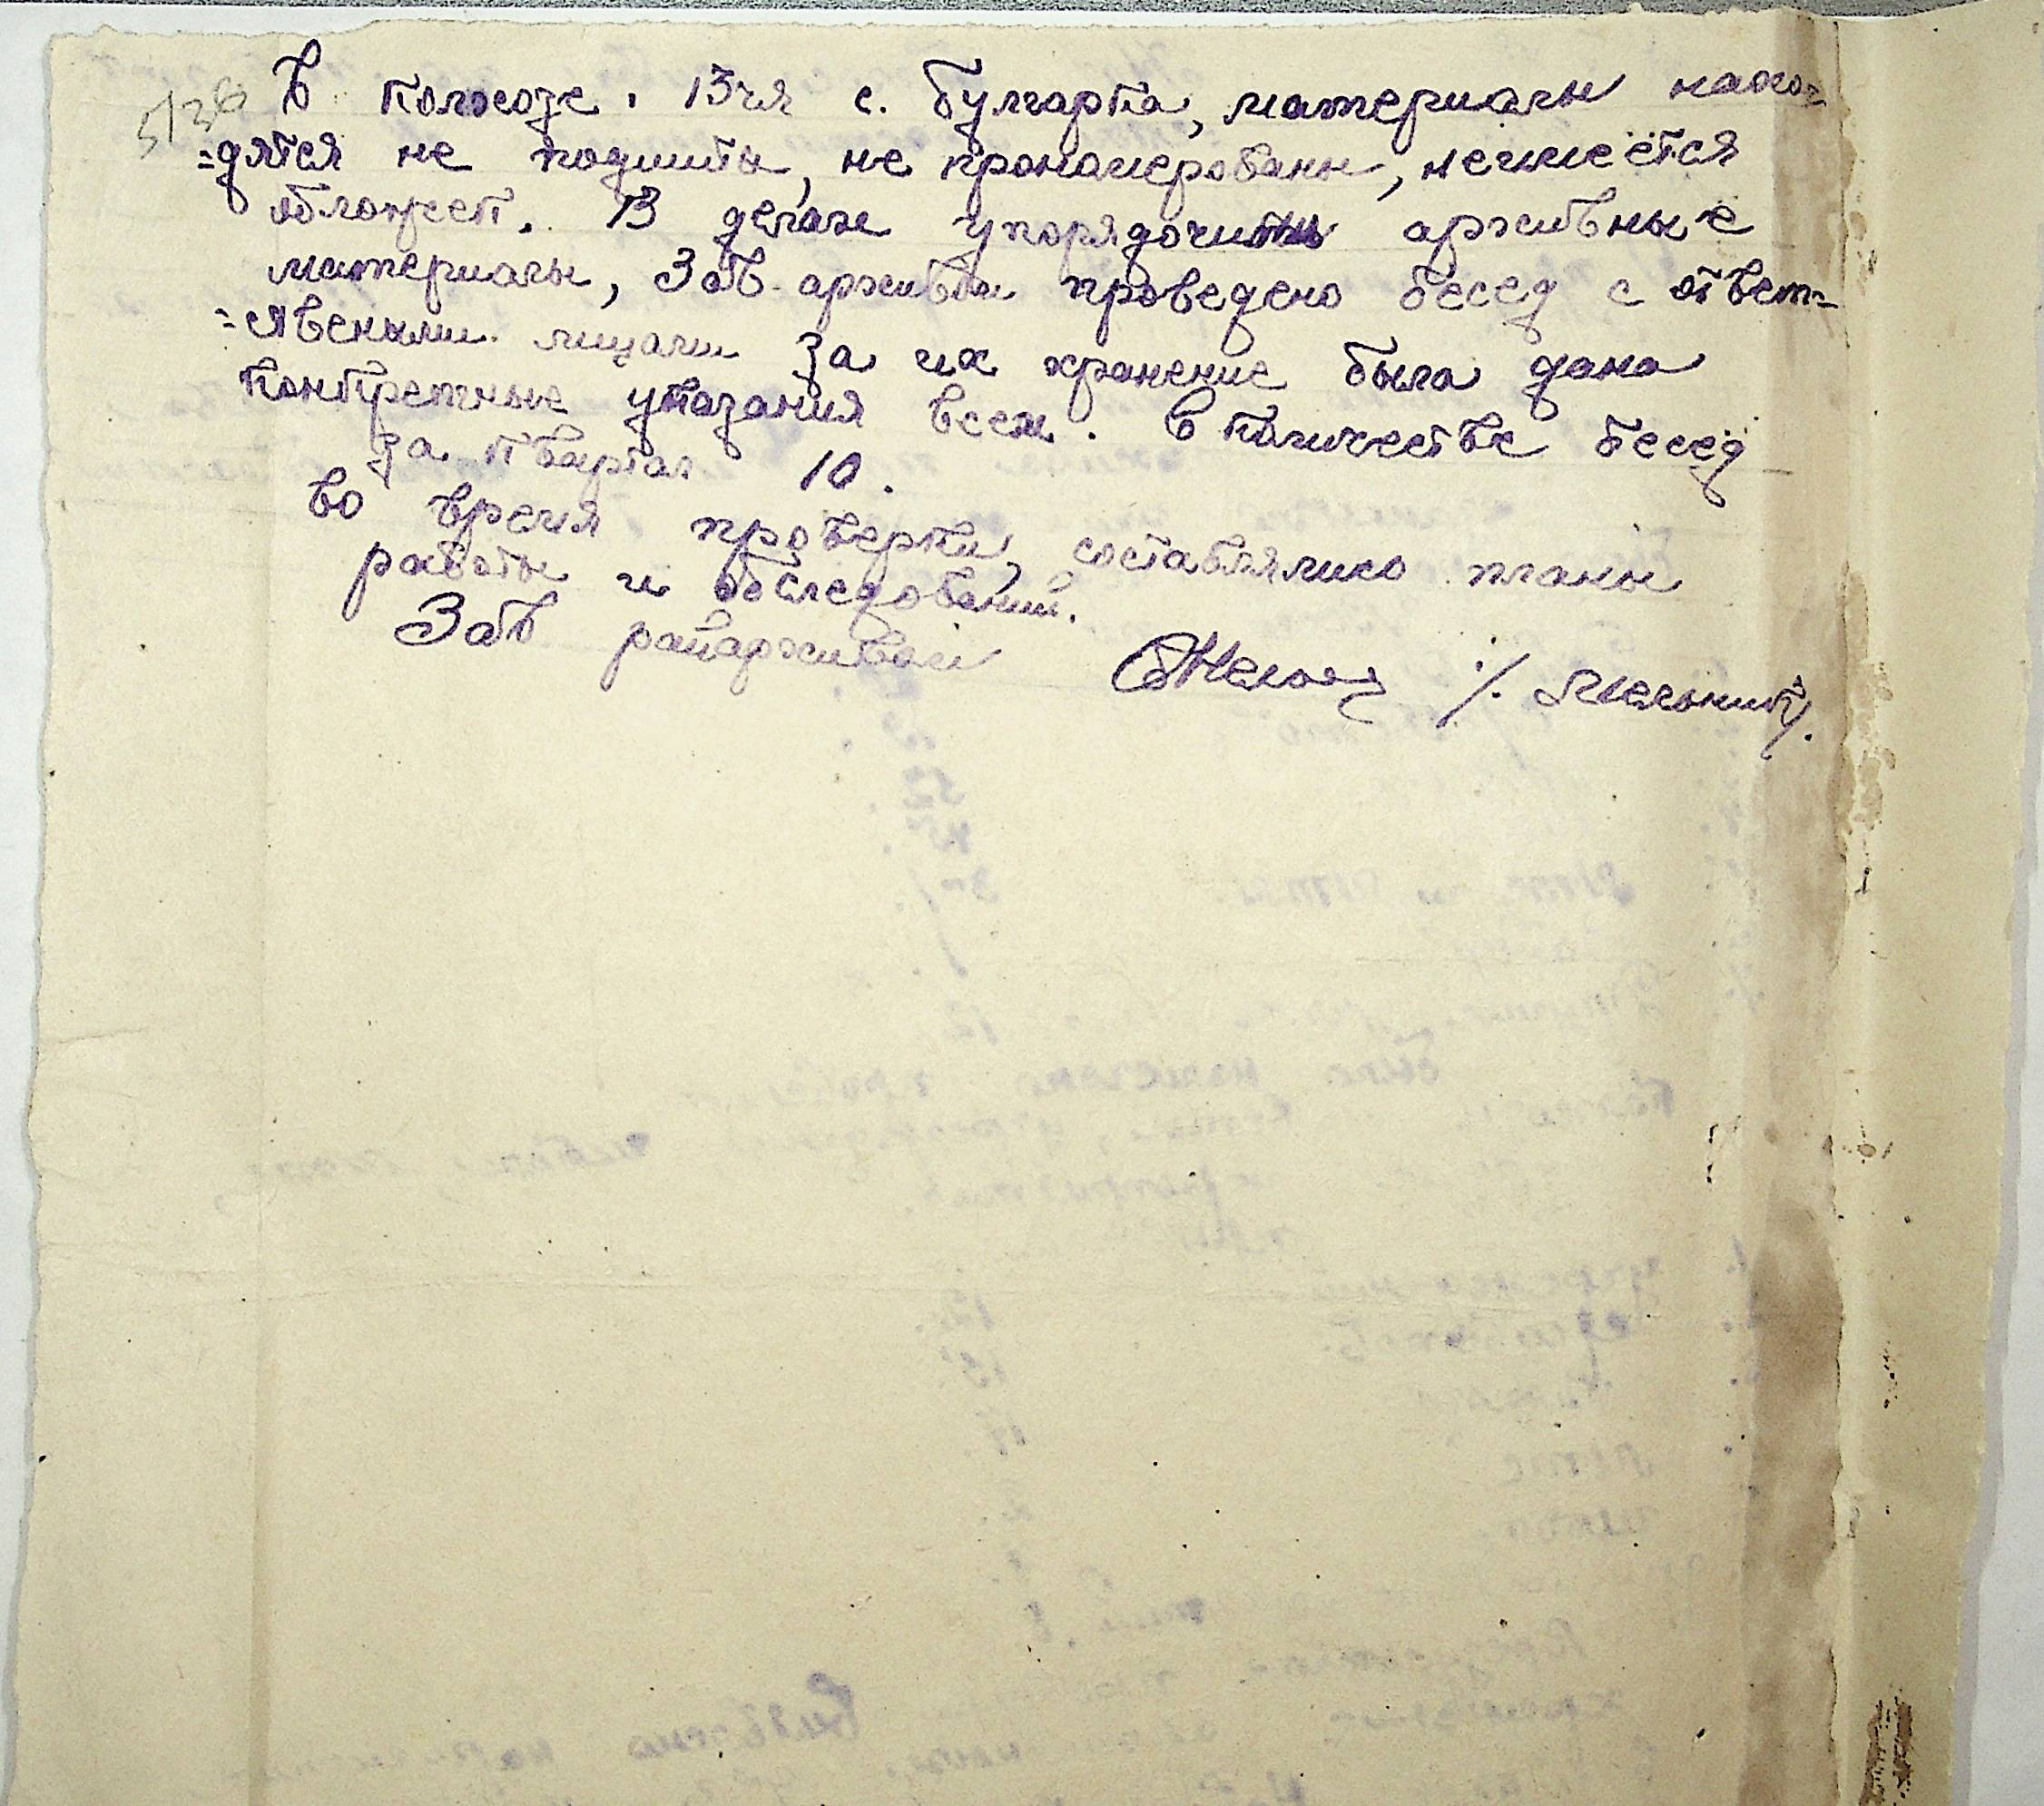 В колхозе. 13 ч-я с. Булгарка, материалы нахо=
=дятся не подшиты, не прономерованы, неимеётся
обложек. В делах упорядочить архивные
материалы, Зав. архивом проведено бесед с ответ=
=ственыли лицами за их хранение была дана
конкретные указания всем. в количестве бесед
за квартал 10.
во время проверки, составлялисо планы
работы и обследований.
Зав райархивом /. Мельник/.